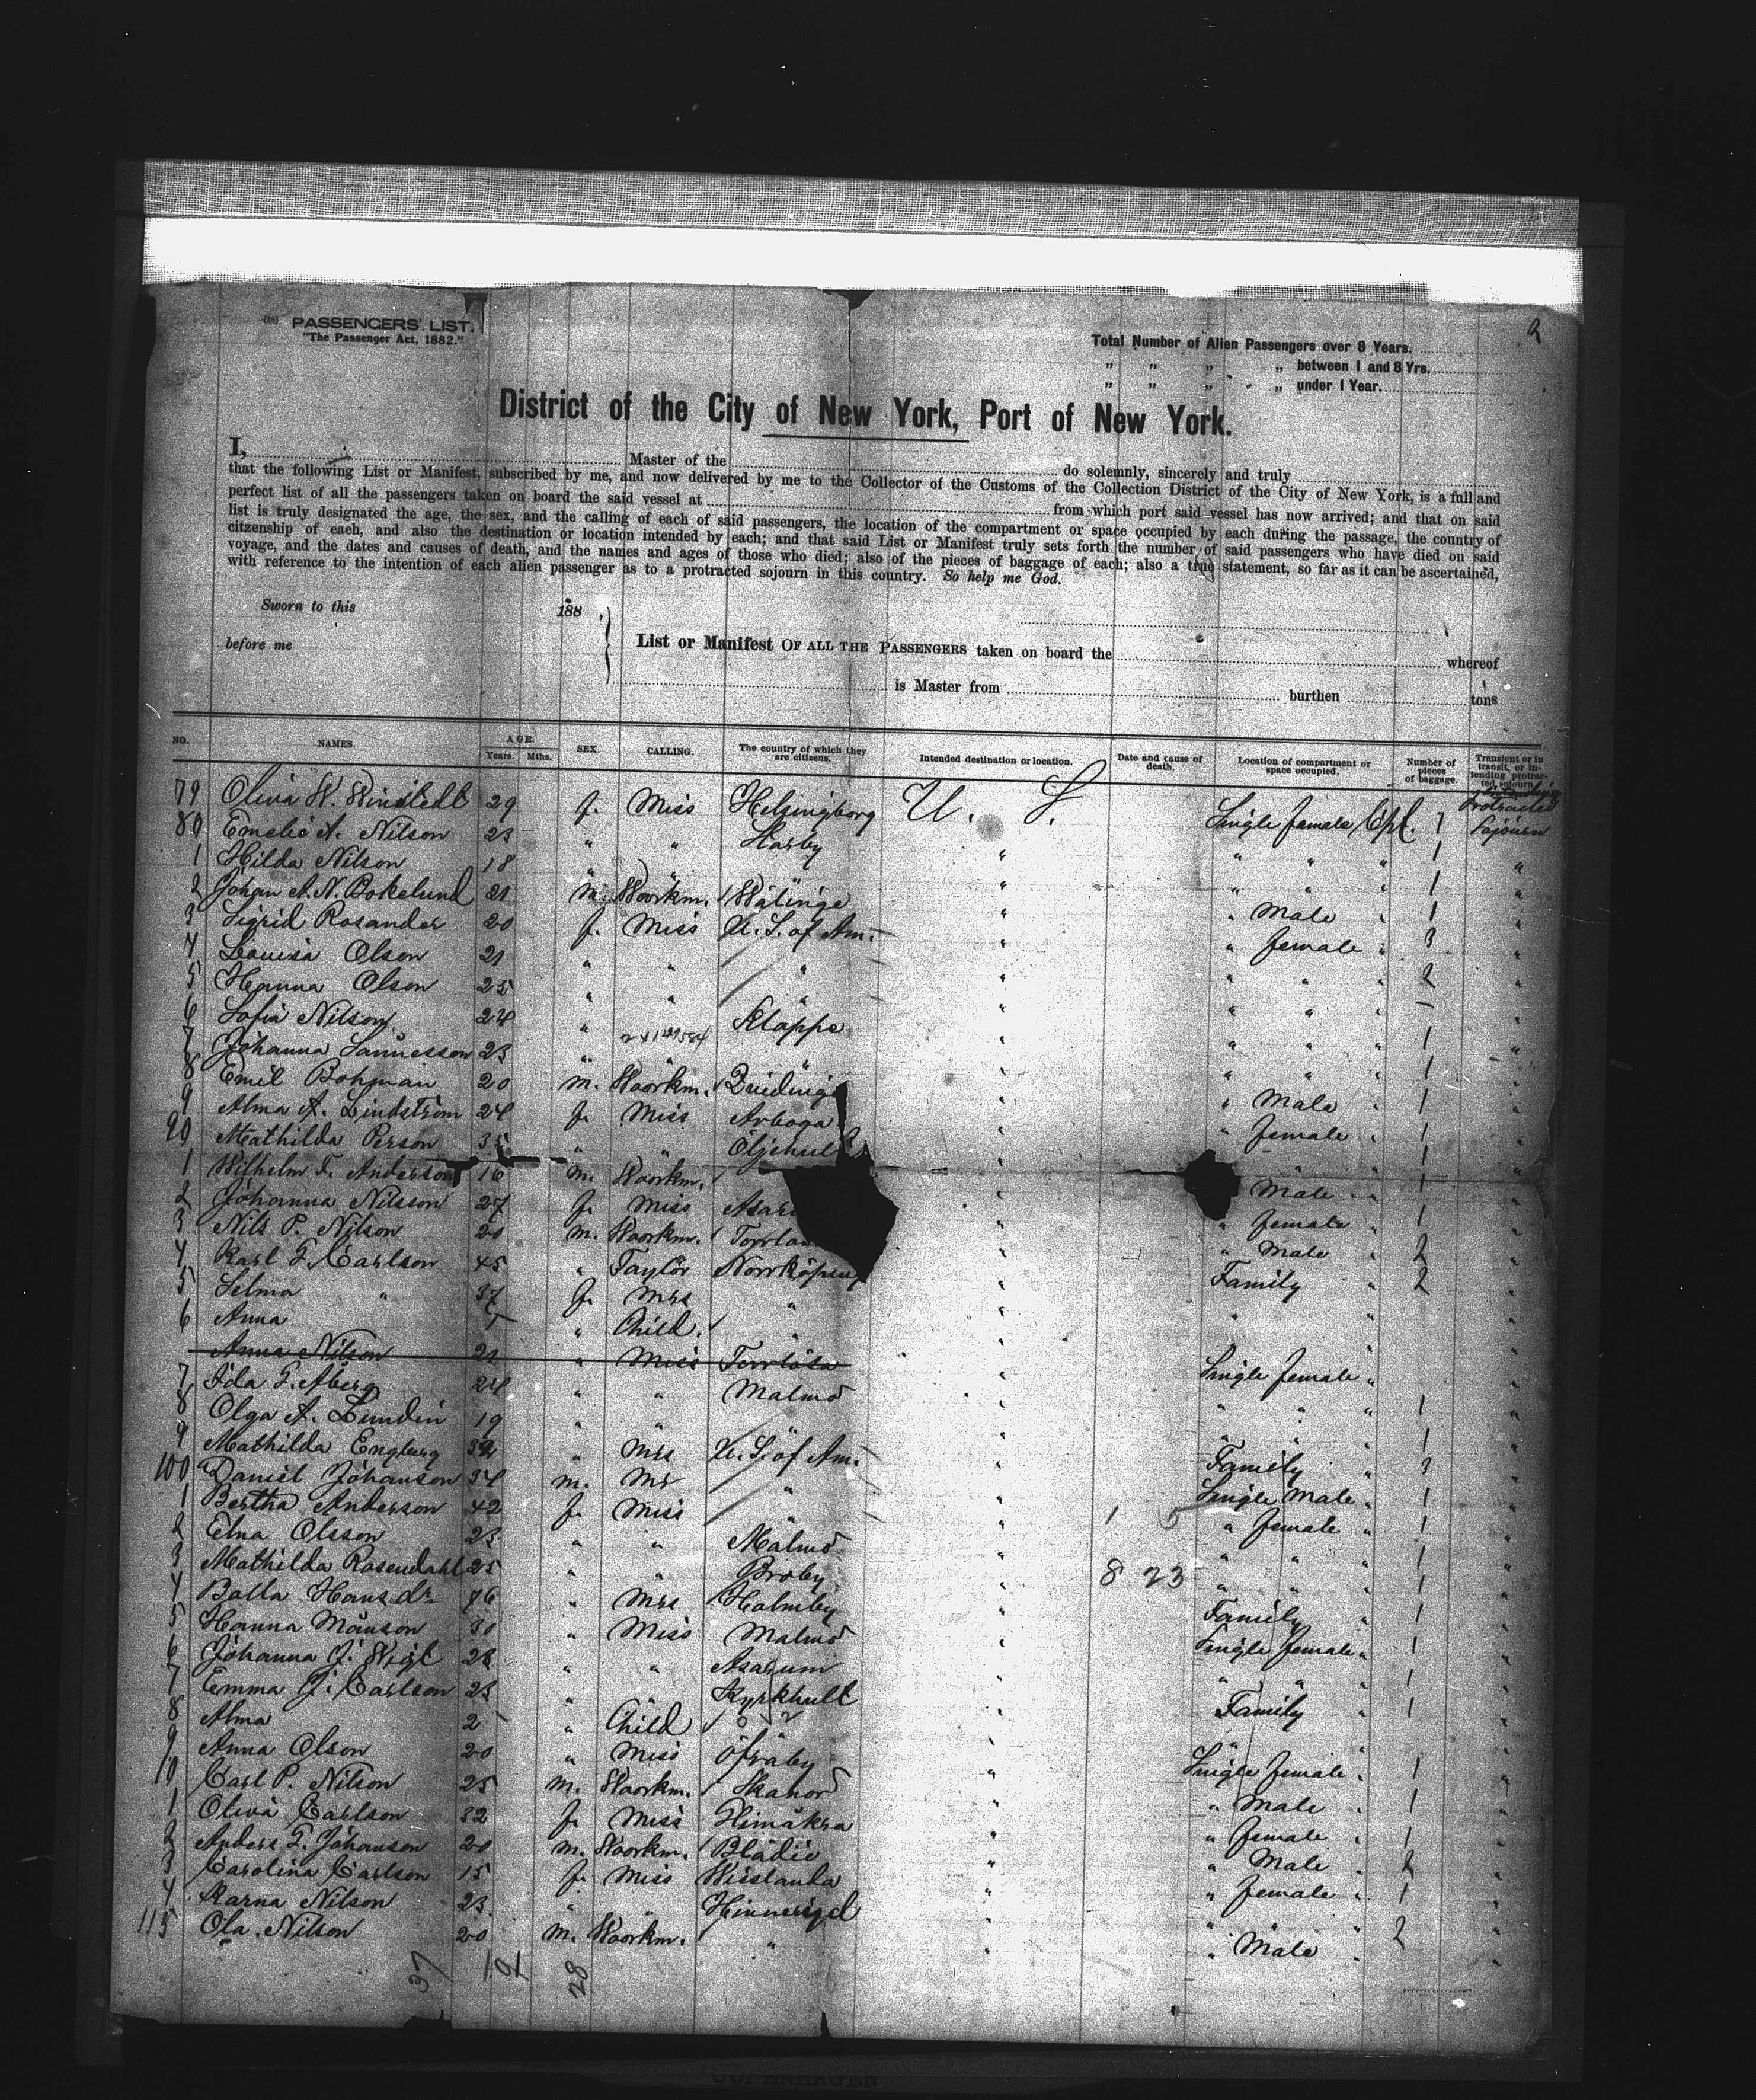 PASSENGERS' LIST.
"The Passenger Act, 1882."
Total Number of Alien Passengers over 8 Years.
„ „ „ „ between 1 and 8 Yrs.
„ „ „ „ under 1 Year.
District of the City of New York, Port of New York.
I, Master of the do solemnly, sincerely and truly
that the following List or Manifest, subscribed by me, and now delivered by me to the Collector of the Customs of the Collection District of the City of New York, is a full and
perfect list of all the passengers taken on board the said vessel at from which port said vessel has now arrived; and that on said
list is truly designated the age, the sex, and the calling of each of said passengers, the location of the compartment or space occupied by each during the passage, the country of
citzenship of each, and also the destination or location intended by each; and that said List or Manifest truly sets forth the number of said passengers who have died on said
voyage, and the dates and causes of death, and the names and ages of those who died; also of the pieces of baggage of each; also a true statement, so far as it can be ascertained,
with reference to the intention of each alien passenger as to a protracted sojourn in this country. So help me God.
Sworn to this 188 ,
before me
List or Manifest OF ALL THE PASSENGERS taken on board the whereof
is Master from burthen tons
NO. NAMES. AGE. Years. Mths. SEX. CALLING. The country of which they are citizens. Intended destination or location. Date and cause of death. Location of compartment or space occupied. Number of pieces of baggage. Transient or in transit, or intending protracted sojourn
79 Oliva W. Winstedt 29 f. Miss Helsingborg U. S. Single female Cpt. 1 Protracted
80 Emelie A. Nilson 23 " " " " " " 1 Sojourn
1 Hilda Nilson 18 " " " " " " 1 "
2 Johan A. N. Bokelund 21 m. Woorkm. Wälinge " " Male " 1 "
3 Sigrid Rosander 20 f. Miss U. S. of Am. " " female " 3 "
4 Lovisa Olson 21 " " " " " " " 2 "
5 Hanna Olson 25 " " " " " " " – "
6 Sofia Nilson 24 " Kläppe " " " " 1 "
7 Johanna 23 " " " " " 1 "
8 Emil Bohman 20 m. Woorkm. " " Male " 1 "
9 Alma A. Lindström 24 f. Miss Arboga " " female " 1 "
90 Mathilda Person 35 " " " " " " 1 "
1 Wilhelm F. Anderson 16 m. Woorkm. " " Male " 1 "
2 Johanna Nilsson 27 f. Miss " " female " 1 "
3 Nils P. Nilson 20 m. Woorkm. " " Male " 2 "
4 Karl F. Carlson 45 " Taylor Norrköping " Family " 2 "
5 Selma " 37 f. Mrs " " " " "
6 Anna " Child. " " "
Anna Nilson 21 " Miss Torrlösa " Single female " "
7 Ida F. Åberg 24 " " Malmö " " " " 1 "
8 Olga A. Lundin 19 " " " " " " 1 "
9 Mathilda Engberg " Mrs U. S. of Am. " Family " 3 "
100 Daniel Johanson 34 m. Mr " " Single Male " 1 "
1 Bertha Anderson 42 f. Miss " " 1 5 " female " 1 "
2 Elna Olsson 23 " " Malmö " " " " 1 "
3 Mathilda Rosendahl 25 " " Broby " 8 23 " " " 1 "
4 Bolla Hans dr 76 " Mrs Holmby " Family " 1 "
5 Hanna Månson 30 " Miss Malmö " Single female " 1 "
6 Johanna J. 28 " " Asarum " " " " 1 "
7 Emma J. Carlson 23 " " Kyrkhult " Family " 1 "
8 Alma 2 " Child " " " "
9 Anna Olson 20 " Miss Öfraby " Single female " 1 "
10 Carl P. Nilson 25 m. Woorkm. Skanör " " Male " 1 "
1 Oliva Carlson 32 f. Miss Glimåkra " " female " 1 "
2 Anders F. Johanson 20 m. Woorkm. Bladie " " Male " 2 "
3 Carolina Carlson 15 f. Miss Wislanda " " female " 1 "
4 Karna Nilson 23 " " " " " "
115 Ola Nilson 20 m. Woorkm. " " " Male " 2 "
37 19 28